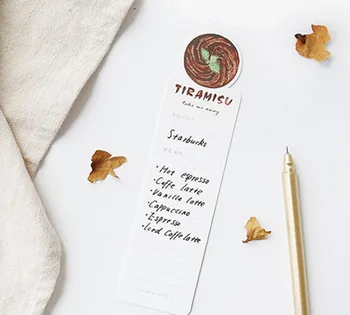 TIRAMISU
take me away
Starbucks
· Hot espresso
· Caffe latte
· Vanilla latte
· Cappuccino
· Espresso
· Iced Caffelatte